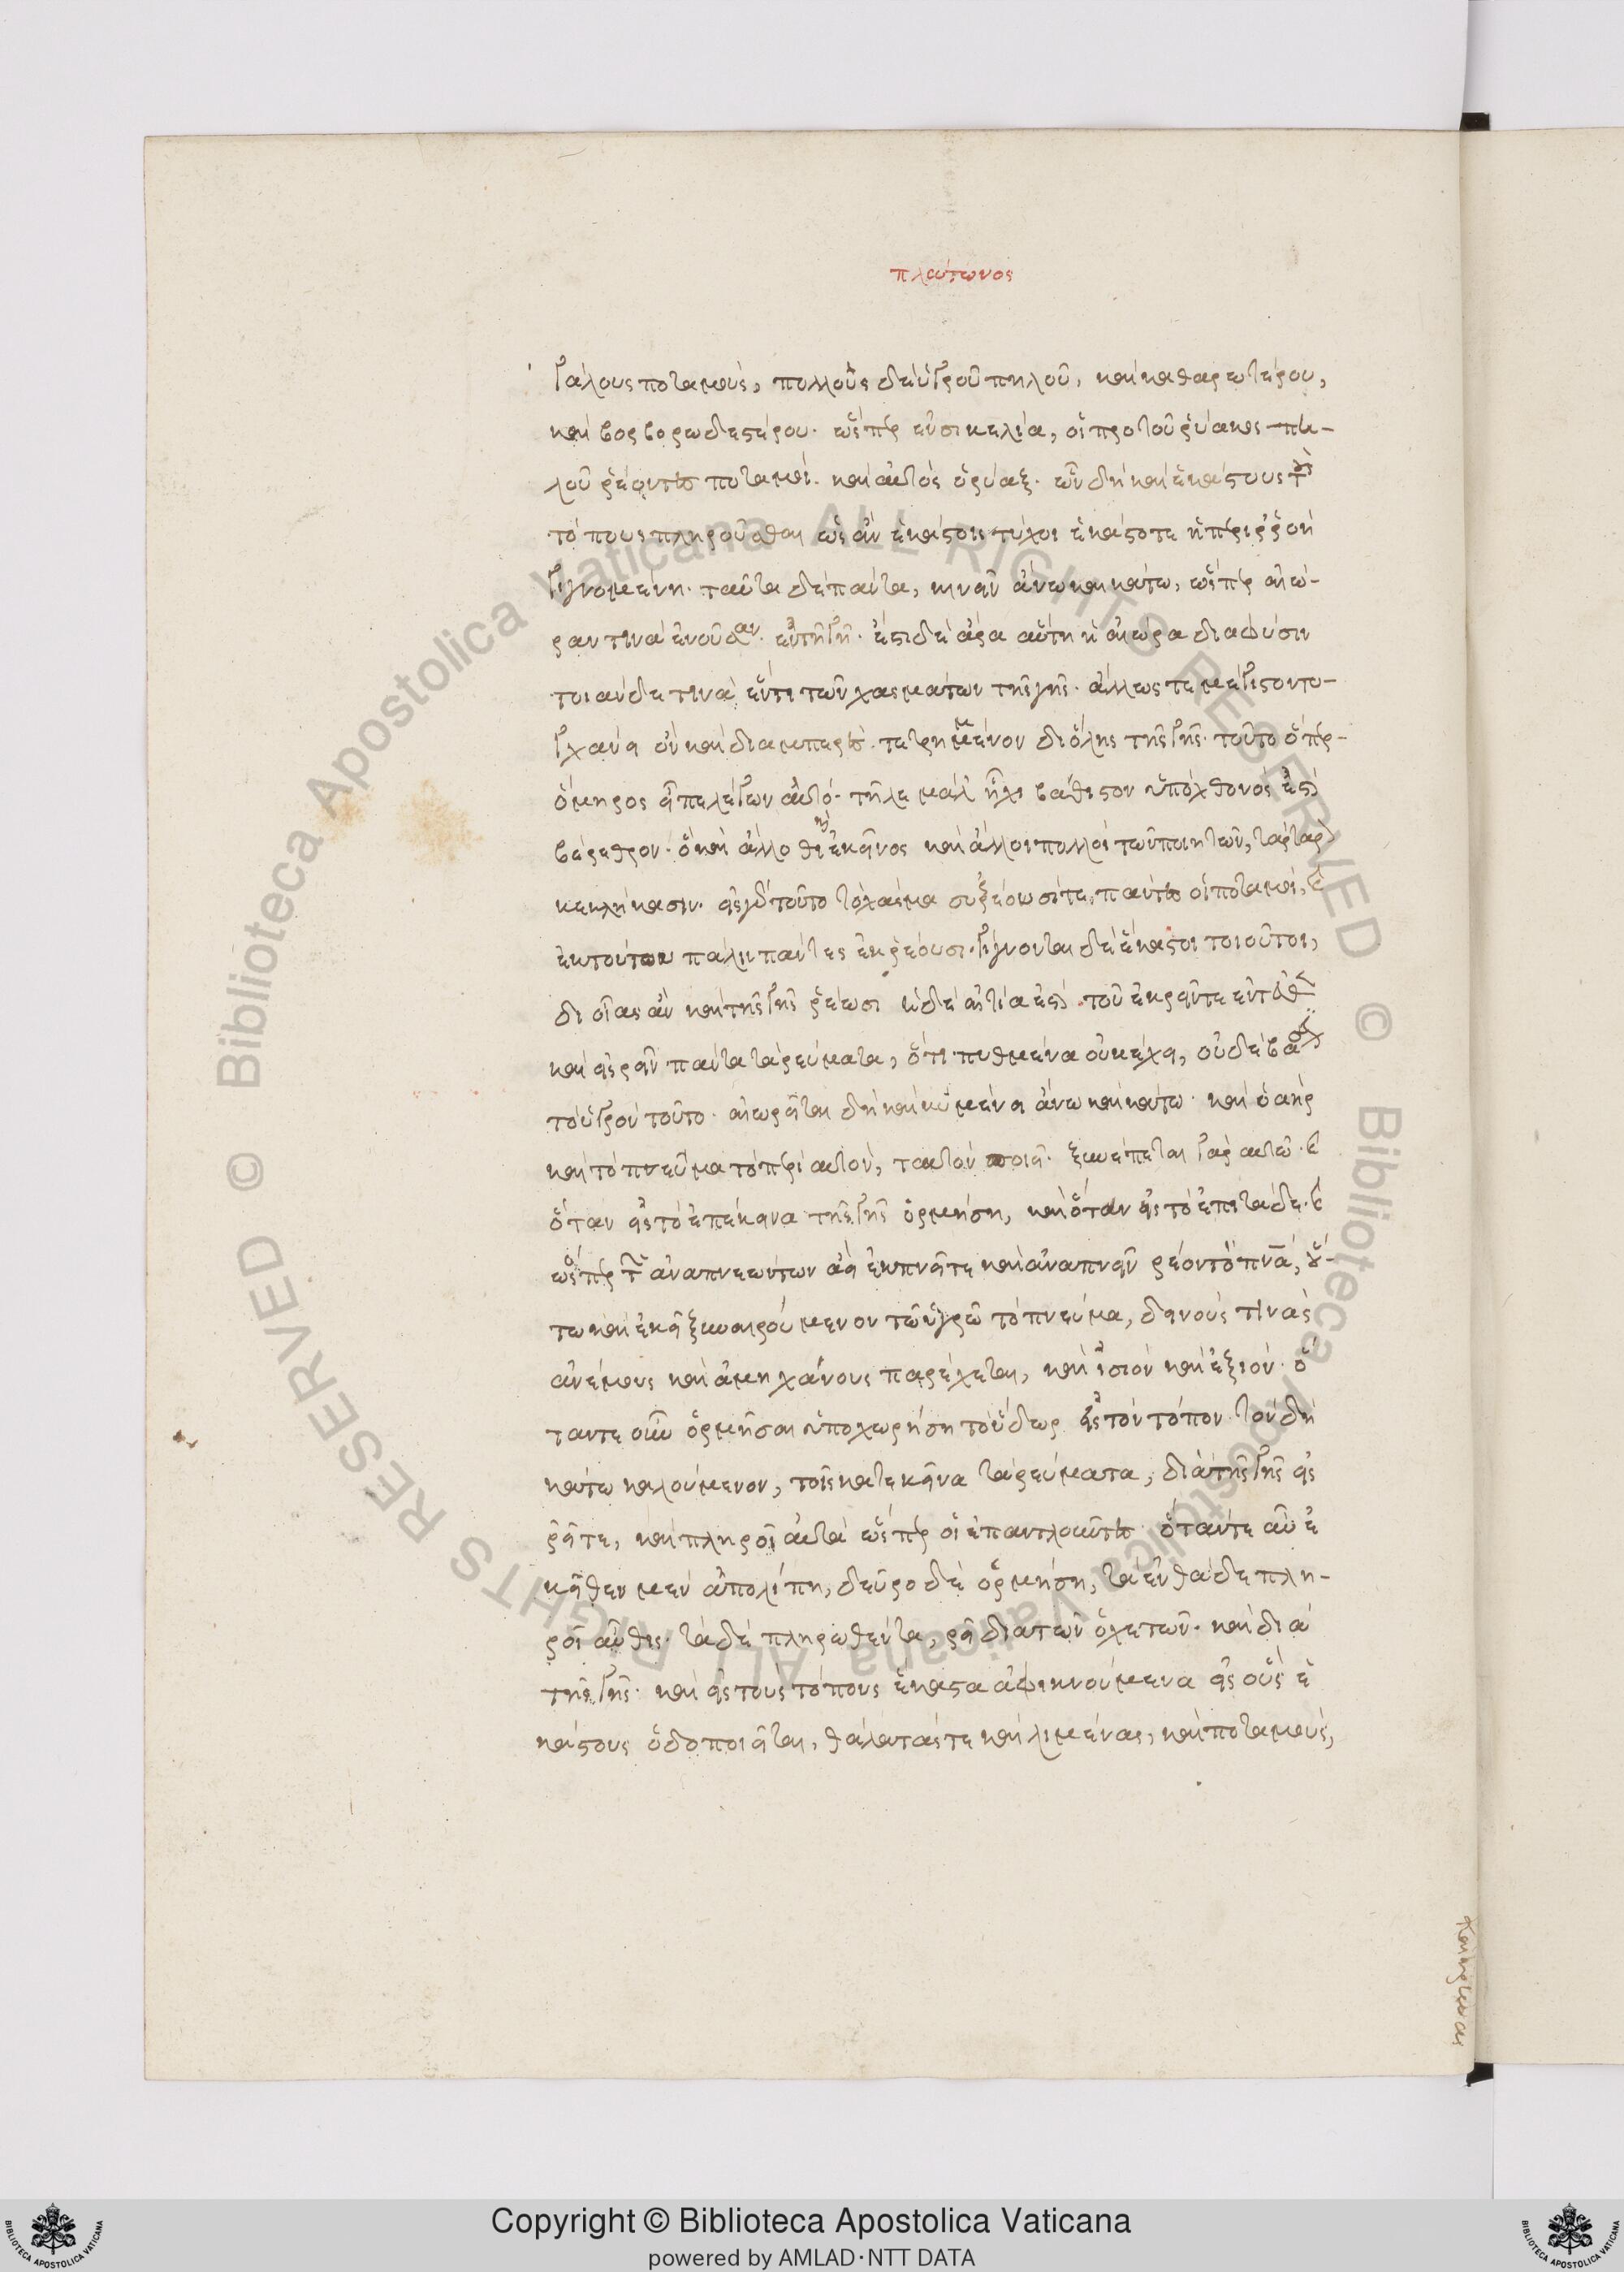 πλάτωνος
γάλους ποταμοὺς, πολλοὺς δὲ ὑγροῦ πηλοῦ, καὶ καθαρωτέρου,
καὶ βορβορωδεστέρου. ὥσπερ ἐν σικελία, οἱ πρὸ τοῦ ῥύακος πη-
λοῦ ῥέοντες ποταμοί. καὶ αὐτὸς ὁ ρύαξ. ὧν δὴ καὶ ἑκάστους τοὺς
τόπους πληροῦσθαι ὡς ἂν ἑκάστοις τύχοι ἑκάστοτε ἡ περιρροὴ
γιγνομένη. ταῦτα δὲ πάντα, κινεῖν ἄνω καὶ κάτω, ὥσπερ αἰώ-
ραν τινὰ ἐνοῦσαν. ἐν τῆ γῆ. ἔστι δὲ ἄρα αὕτη ἡ αἰώρα διὰ φύσιν
τοιάνδε τινὰ ἕν τι τῶν χασμάτων τῆς γῆς. ἄλλως τε μέγιστον τυ-
γχάνει ὂν καὶ διαμπερὲς. τετρημμένον δι ὅλης τῆς γῆς. τοῦτο ὅπερ-
ὅμηρος εἶπε λέγων αὐτό. τῆλε μάλ ἧχι βάθιστον ὑπὸ χθονός ἐστι
βέρεθρον. ὃ καὶ ἄλλοθι καὶ ἐκεῖνος καὶ ἄλλοι πολλοὶ τῶν ποιητῶν, τάρταρον
κεκλήκασιν. εἰς γὰρ τοῦτο τὸ χάσμα συρέουσί τε, πάντες οἱ ποταμοί, καὶ
ἐκ τούτου πάλιν πάντες ἐκρέουσι. γίγνονται δὲ ἕκαστοι τοιοῦτοι,
δι οἵας ἂν καὶ τῆς γῆς ῥέωσι ἡ δὲ αἰτία ἐστὶ τοῦ ἐκρεῖν τε ἐντεῦθεν
καὶ εἰσρεῖν πάντα τὰ ρεύματα, ὅτι πυθμένα οὐκ ἔχει, οὐδὲ βάσιν
τὸ ὑγρὸν τοῦτο. αἰωρεῖται δὴ καὶ κυμαίνει ἄνω καὶ κάτω. καὶ ὁ αὴρ
καὶ τὸ πνεῦμα τὸ περὶ αὐτὸν, ταυτὸν ποιεῖ. ξυνέπεται γὰρ αὐτῶ. καὶ
ὅταν εἰς τὸ ἐπέκεινα τῆς γῆς ὁρμήση, καὶ ὅταν εἰς τὸ ἐπὶ τάδε. καὶ
ὥσπερ τῶν ἀναπνεόντων ἀεὶ ἐκπνεῖ τε καὶ ἀναπνεῖν ρέον τὸ πνα, οὕ-
τω καὶ ἐκεῖ ξυναιρούμενον τῶ ὑγρῶ τὸ πνεύμα, δεινούς τινας
ἀνέμους καὶ ἀμηχάνους παρέχεται, καὶ εἰσιὸν καὶ ἐξιόν. ὅ
ταν τε οὖν ὁρμῆσαν ὑποχωρήση τὸ ὕδωρ εἰς τὸν τόπον τὸν δὴ
κάτω καλούμενον, τοῖς κατ εκεῖνα τὰ ρεύματα, διὰ τῆς γῆς εἰσ
ρεῖ τε, καὶ πληροῖ αὐτὰ ὥσπερ οἱ ἐπαντλοῦντες. ὅταν τε αὖ ἐ
κεῖθεν μὲν ἀπολίπη, δεῦρο δὲ ὁρμήση, τὰ ἐνθάδε πλη-
ροῖ αὖθις. τὰ δὲ πληρωθέντα, ρεῖ διὰ τῶν ὀχετῶν. καὶ διὰ
τῆς γῆς. καὶ εἰς τοὺς τόπους ἕκαστα ἀφικνούμενα εἰς οὓς ἑ
κάστους ὁδοποιεῖται, θαλάτας τε καὶ λιμένας, καὶ ποταμοὺς,
καὶ κρήνας
Copyright © Biblioteca Apostolica Vaticana
powered by AMLAD·NTT DATA
© Biblioteca Apostolica Vaticana ALL RIGHTS RESERVED
© Biblioteca Apostolica Vaticana ALL RIGHTS RESERVED
BIBLIOTECA APOSTOLICA VATICANA
BIBLIOTECA APOSTOLICA VATICANA